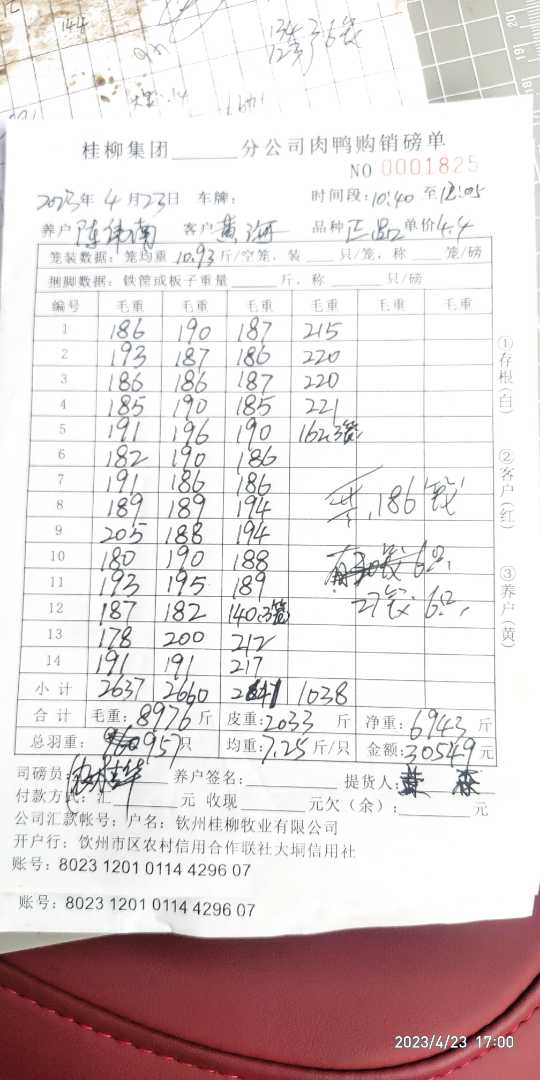 144
134 36笼
123
桂柳集团______分公司肉鸭购销磅单
NO 0001825
2023年 4月23日 车牌: 时间段:10:40 至12:05
养户 陈伟南 客户 黄海 品种 正品 单价4.4
笼装数据: 笼均重 10.93 斤/空笼, 装 ___ 只/笼, 称 ___ 笼/磅
捆脚数据: 铁筐或板子重量______斤, 称______只/磅
编号 毛重 毛重 毛重 毛重 毛重 毛重
1 186 190 187 215
2 193 187 186 220
3 186 186 187 220
4 185 190 185 221
5 191 196 190 162.3笼
6 182 190 186
7 191 186 186
8 189 189 194
9 205 188 194
10 180 190 188
11 193 195 189
12 187 182 140.3笼
13 178 200 212
14 191 191 217
小计 2637 2660 2641 1038
186笼
6只,
27笼6只,
合计 毛重:8976斤 皮重:2033 斤 净重:6943斤
总羽重: 957只 均重:7.25斤/只 金额:30549元
司磅员: 养户签名:______ 提货人:
付款方式: 汇______元 收现______元欠(余):______元
公司汇款帐号: 户名: 钦州桂柳牧业有限公司
开户行: 钦州市区农村信用合作联社大垌信用社
账号: 8023 1201 0114 4296 07
账号: 8023 1201 0114 4296 07
①存根(白)
②客户(红)
③养户(黄)
2023/4/23 17:00